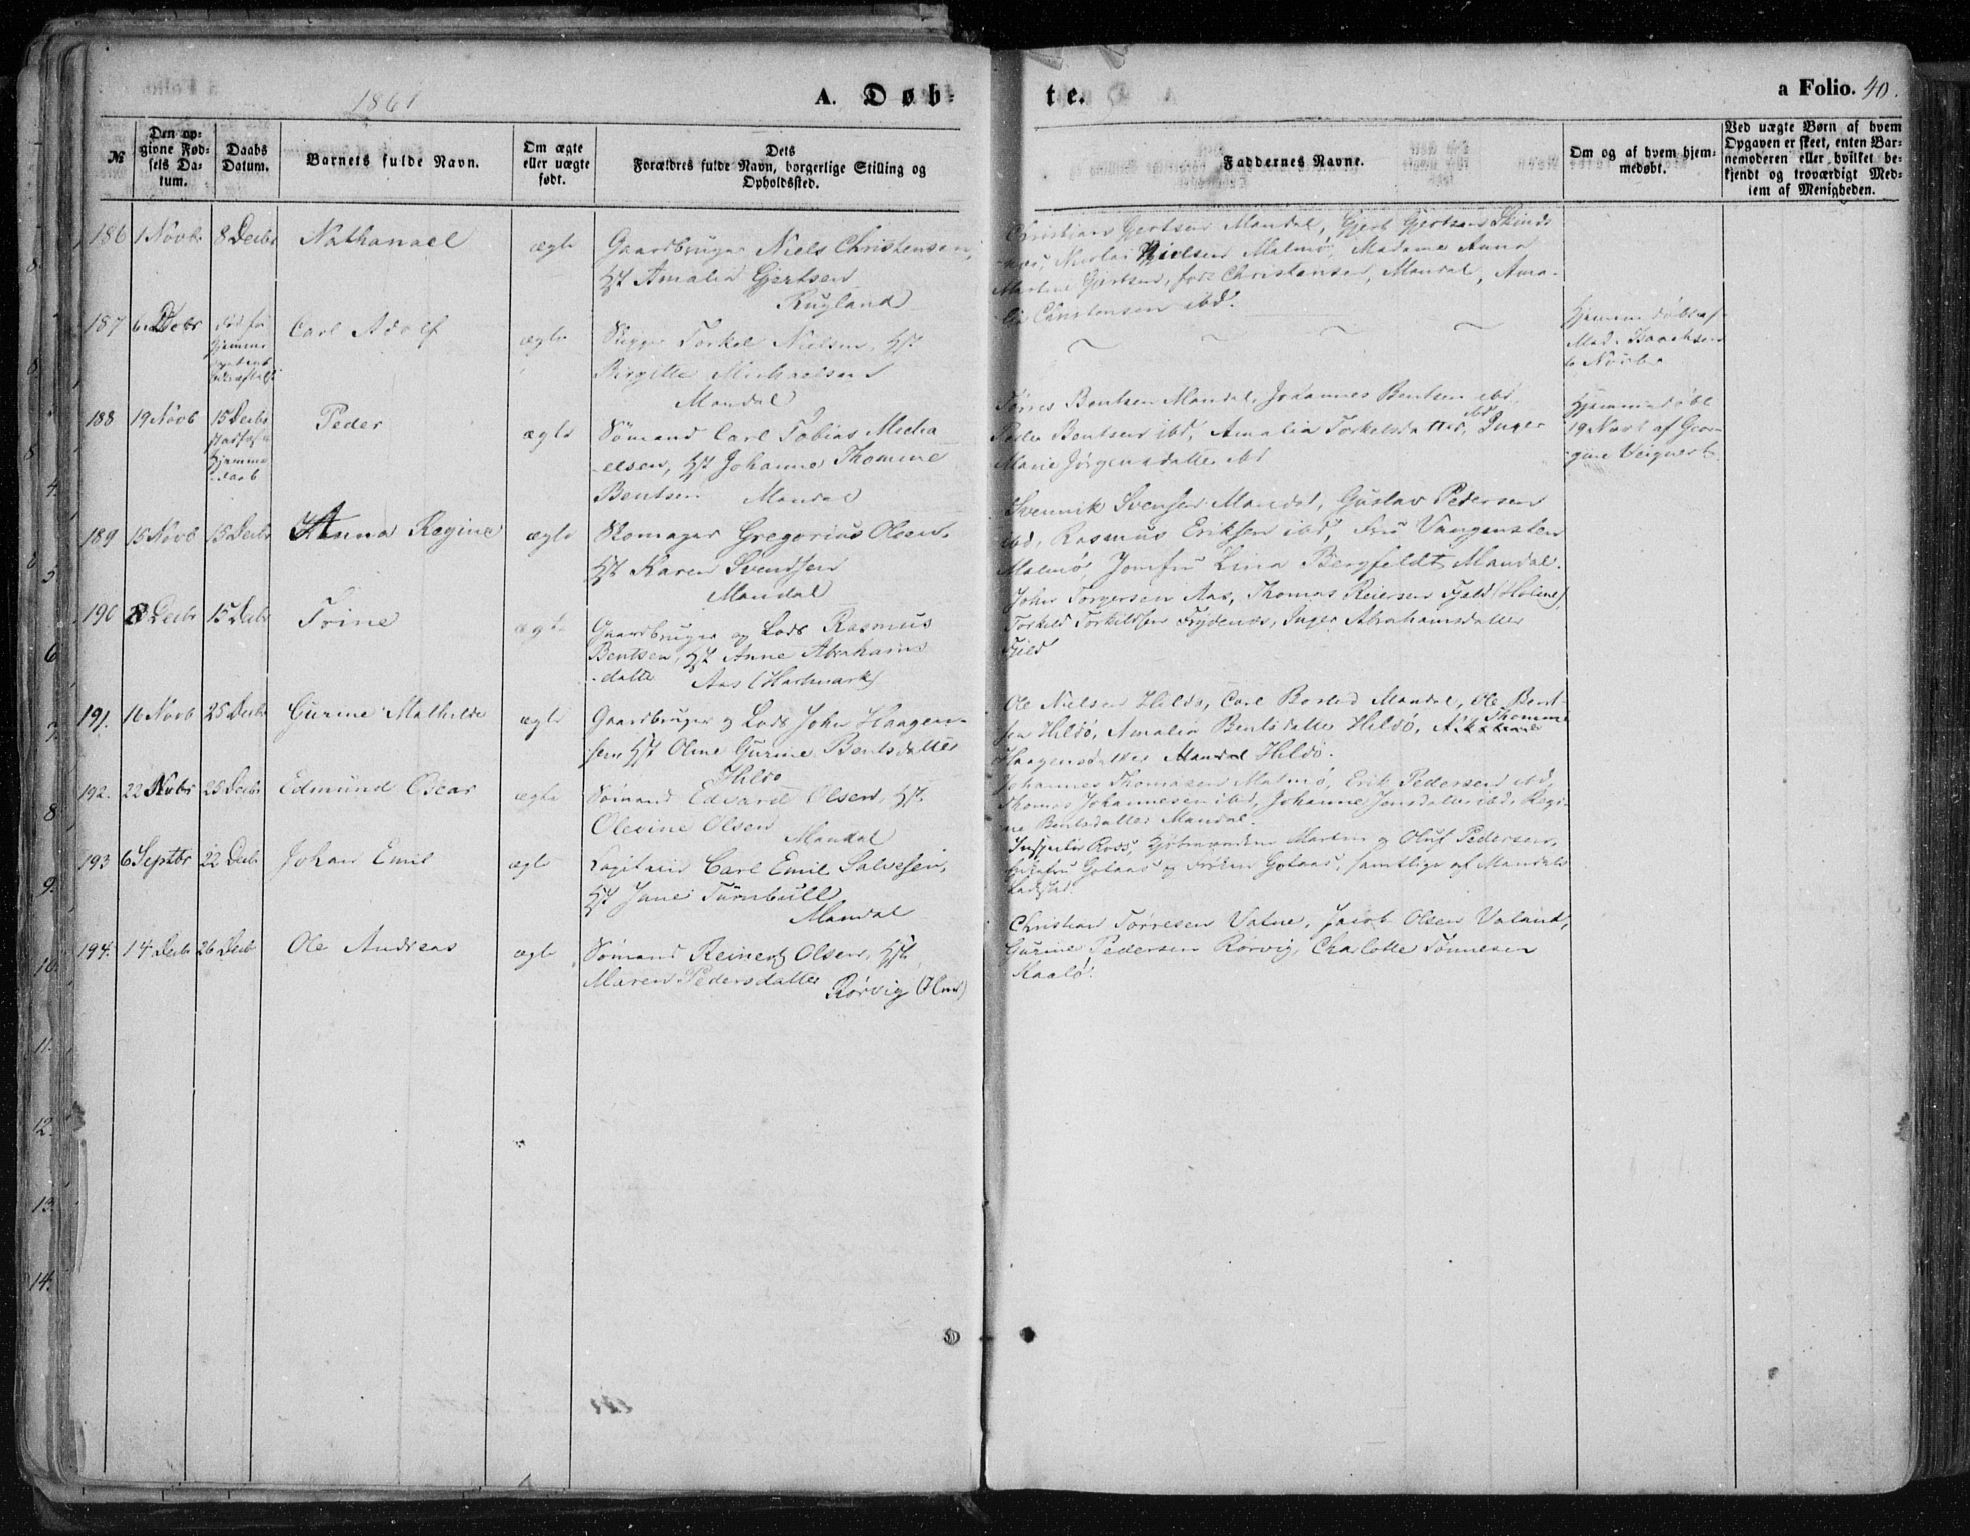 1861
A. Døb-
te.
a Folio. 40.
№
Den op-
givne Fød-
sels Da-
tum.
Daabs
Datum.
Barnets fulde Navn.
Om ægte
eller uægte
født.
Dets
Forældres fulde Navn, borgerlige Stilling og
Opholdssted.
Faddernes Navne.
Om og af hvem hjem-
medøbt.
Ved uægte Børn af hvem
Opgaven er skeet, enten Bar-
nemoderen eller hvilket be-
kjendt og troværdigt Med-
lem af Menigheden.
186 1 Novbr 8 Decbr Nathanael ægte Gaardbruger Niels Christensen,
Hst Amalia Gjertsen
Rugland
Christian Gjertsen Mandal, Gjert Gjertsen
Nicolai Nielsen Malmø, Madame Anna
Martine Gjertsen, født Christensen, Mandal, Ama-
lia Christensen ibd.
187 6 Carl Adolf ægte Torkel Nielsen, Hst
Birgitte Michaelsen
Mandal
Hjemmedøbt af
Mad. Isaachsen
6 Novbr
188 19 Novb 15 Decbr Peder ægte Sømand Carl Tobias Micha-
Hjemme-
daab
elsen, Hst Johanne Thomine
Bentsen Mandal
Tørres Bentsen Mandal, Johannes Bentsen ibd,
Peder Bentsen ibd, Amalia Torkelsdatter ibd, Inger
Marie Jørgensdatter ibd
Hjemmedøbt
19 Novb af Geor-
gine Weignert
189 15 Novb 15 Decbr Anna Regine ægte Skomager Gregorius Olsen,
Hst Karen Svendsen
Mandal
Svennik Svensen Mandal, Gustav Pedersen
ibd, Rasmus Eriksen ibd, Fru Vangensten
Malmø, Jomfru Lina Bergfeldt Mandal.
190 8 Decbr 15 Decbr Trine ægte Gaardbruger og Lods Rasmus
Bentsen, Hst Anne Abrahams
-datter Aas (Hartmark)
John Torgersen Aas, Thomas Reiersen Fjeld (Holme),
Torkild Torkildsen Frydenæs, Inger Abrahamsdatter
Field
191. 16 Novb 25 Decbr Gurine Mathilde ægte Gaardbruger og Lods John Haagen-
sen, Hst Oline Gurine Bentsdatter
Hildø
Ole Nielsen Hildø, Carl Bosted Mandal, Ole Bent-
sen Hildø, Amalia Bentsdatter Hildø, Thomine
Haagensdatter Mandal Hildø.
192. 22 Novbr 25 Decbr Edmund Oscar ægte Sømand Edvard Olsen, Hst
Olevine Olsen
Mandal
Johannes Thomasen Malmø, Erik Pedersen ibd,
Thomas Johannesen ibd, Johanne Jensdatter ibd, Regi-
ne Bentsdatter Mandal.
193 6 Septbr 22 Decbr Johan Emil ægte Capitain Carl Emil Salvesen,
Hst Jane Turnbull
Mandal
Inspectør Ross, Kjøbmændene Martin og Oluf Pedersen,
Gotaas og Frøken Gotaas, samtlige af Mandals
Ladsted
194. 14 Decbr 26 Decbr Ole Andreas ægte Sømand Reinert Olsen, Hst
Maren Pedersdatter Rørvig
Christian Tørresen Vatne, Jacob Olsen Valand,
Gurine Pedersen Rørvig, Charlotte Tønnesen
Skaalø.
4.
5
6
7.
8.
9.
10.
11.
12.
13.
14.